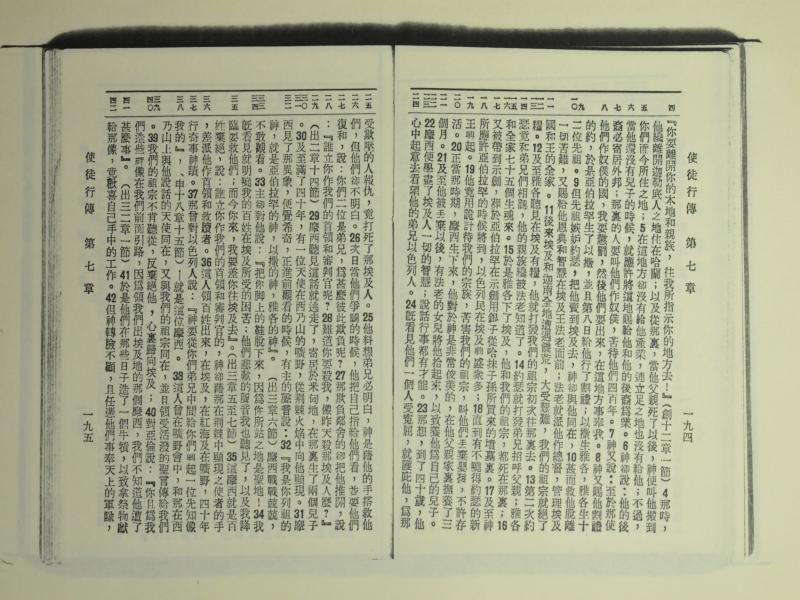 使徒行傳　第七章
一九四
四
五
六
七
八
九
一〇
一一
一二
一三
一四
一五
一六
一七
一八
一九
二〇
二一
二二
二三
二四
『你要離開你的本地和親族，往我所指示你的地方去！』（創十二章一節）4那時，
他纔離開迦勒底人之地住在哈蘭；以及從那裏，當他父親死了以後，神便叫他搬到
你們而今所住之地；5在這地方卻沒有給他產業，連立足之地也沒有給他；不過，
當他還沒有兒子的時候，就應許將這地賜給他和他的後裔爲業。6神卻說：他的後
裔必寄居外邦；那裏的人要叫他們作奴僕，苦待他們四百年。7神又說：至於那使
他們作奴僕的國，我要懲罰，然後他們要出來，在這地方事奉我。8神又賜他割禮
的約，於是亞伯拉罕生了以撒，並且第八日給他行了割禮；以撒生雅各，雅各生十
二位先祖。9但先祖嫉妒約瑟，把他賣到埃及去，神卻與他同在，10甚而救他脫離
一切苦難，又賜給他恩典和智慧在埃及王法老面前；法老就派他作總督，管理埃及
國和王的全家。11後來埃及和迦南全地遭遇饑荒，大受艱難，我們的祖宗就絕了
糧。12及至雅各聽見在埃及有糧，他就打發我們的祖宗初次往那裏去。13第二次約
瑟竟和弟兄們相認，他的親族纔被法老知道了。14約瑟就打發弟兄招呼父親；雅各
和全家七十五個生魂來。15於是雅各下了埃及，他和我們的祖宗，都死在那裏；16
又被帶到示劍，葬於亞伯拉罕在示劍用銀子從哈抹子孫所買來的墳墓裏。17及至神
所應許亞伯拉罕的時候將到，以色列民在埃及興盛衆多；18直到有不曉得約瑟的新
王興起。19他竟用詭計待我們的宗族，苦害我們的祖宗，叫他們丟棄嬰孩，不許存
活。20正當那時期，摩西生下來，他對於神是非常俊美的，在他父親家裏撫養了三
個月。21及至他被丟棄以後，有法老的女兒將他拾起來，以致養他爲自己的兒子。
22摩西便學盡了埃及人一切的智慧；說話行事都有才能。23那想，到了四十歲，他
心中起意去看望他的弟兄以色列人。24旣看見他們一個人受寃屈，就護此他，爲那
使徒行傳　第七章
一九五
二五
二六
二七
二八
二九
三〇
三一
三二
三三
三四
三五
三六
三七
三八
三九
四〇
四一
四二
受欺壓的人報仇，竟打死了那埃及人。25他料想弟兄必明白，神是藉他的手搭救他
們，但他們卻不明白。26次日當他們爭鬪的時候，他把自己指給他們看，並要他們
復和，說：你們二位是弟兄，爲甚麼彼此欺負呢？27那欺負鄰舍的卻把他推開，說
：『誰立你作我們的首領和審判官呢？28難道你要殺我，像昨天殺那埃及人麼？』
（出二章十四節）29摩西聽見這話就逃走了，寄居於米甸地，在那裏生了兩個兒子
。30及至滿了四十年，有一位天使在西乃山的曠野，從荆棘火焰中向他顯現。31摩
西見了那異象，便覺希奇，正進前觀看的時候，有主的聲音說：32『我是你列祖的
神，就是亞伯拉罕的神，以撒的神，雅各的神。』（出三章六節）摩西戰戰兢兢，
不敢觀看。33主卻對他說：『把你脚上的鞋脫下來，因爲你所站之地是聖地！34我
旣看見就明曉我的百姓在埃及所受的困苦；他們悲歎的聲音我也聽見了，以及我降
臨要救他們；而今你來，我要差你往埃及去。』（出三章五至七節）35這摩西就是百
姓棄絕，說：誰立你作我們的首領和審判官的，神卻藉那在荆棘中顯現之使者的手
，差派他作首領和救贖者。36這人領百姓出來，在埃及，在紅海及在曠野，四十年
行奇事神蹟。37那曾對以色列人說：『神要從你們弟兄中間給你們興起一位先知像
我的』，（申十八章十五節）—就是這位摩西。38這人曾在曠野會中，和那在西
乃山上與他說話的天使同在，又與我們的祖宗同在，並且領受活潑的聖言傳給我們
。39我們的祖宗不肯聽從，反棄絕他，心裏歸向埃及；40對亞倫說：『你且爲我
們造些神像在我們前面引路，因爲領我們出埃及地的那個摩西，我們不知道他遭了
甚麼事』。（出三二章一節）41於是他們在那些日子造了一個牛犢，以致拿祭物獻
給那像，竟歡喜自己手中的工作。42但神轉臉不顧，且任憑他們事奉天上的軍隊，